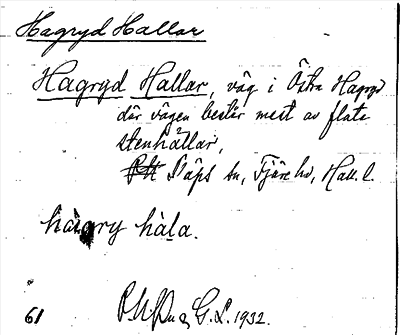 Hagryd Hallar
Hagryd Hallar, väg i Östra Hagryd
där vägen består mest av flata
stenhällar,
Släps sn, Fjäre hd, Hall. l.
hala.
61 G. L. 1932.